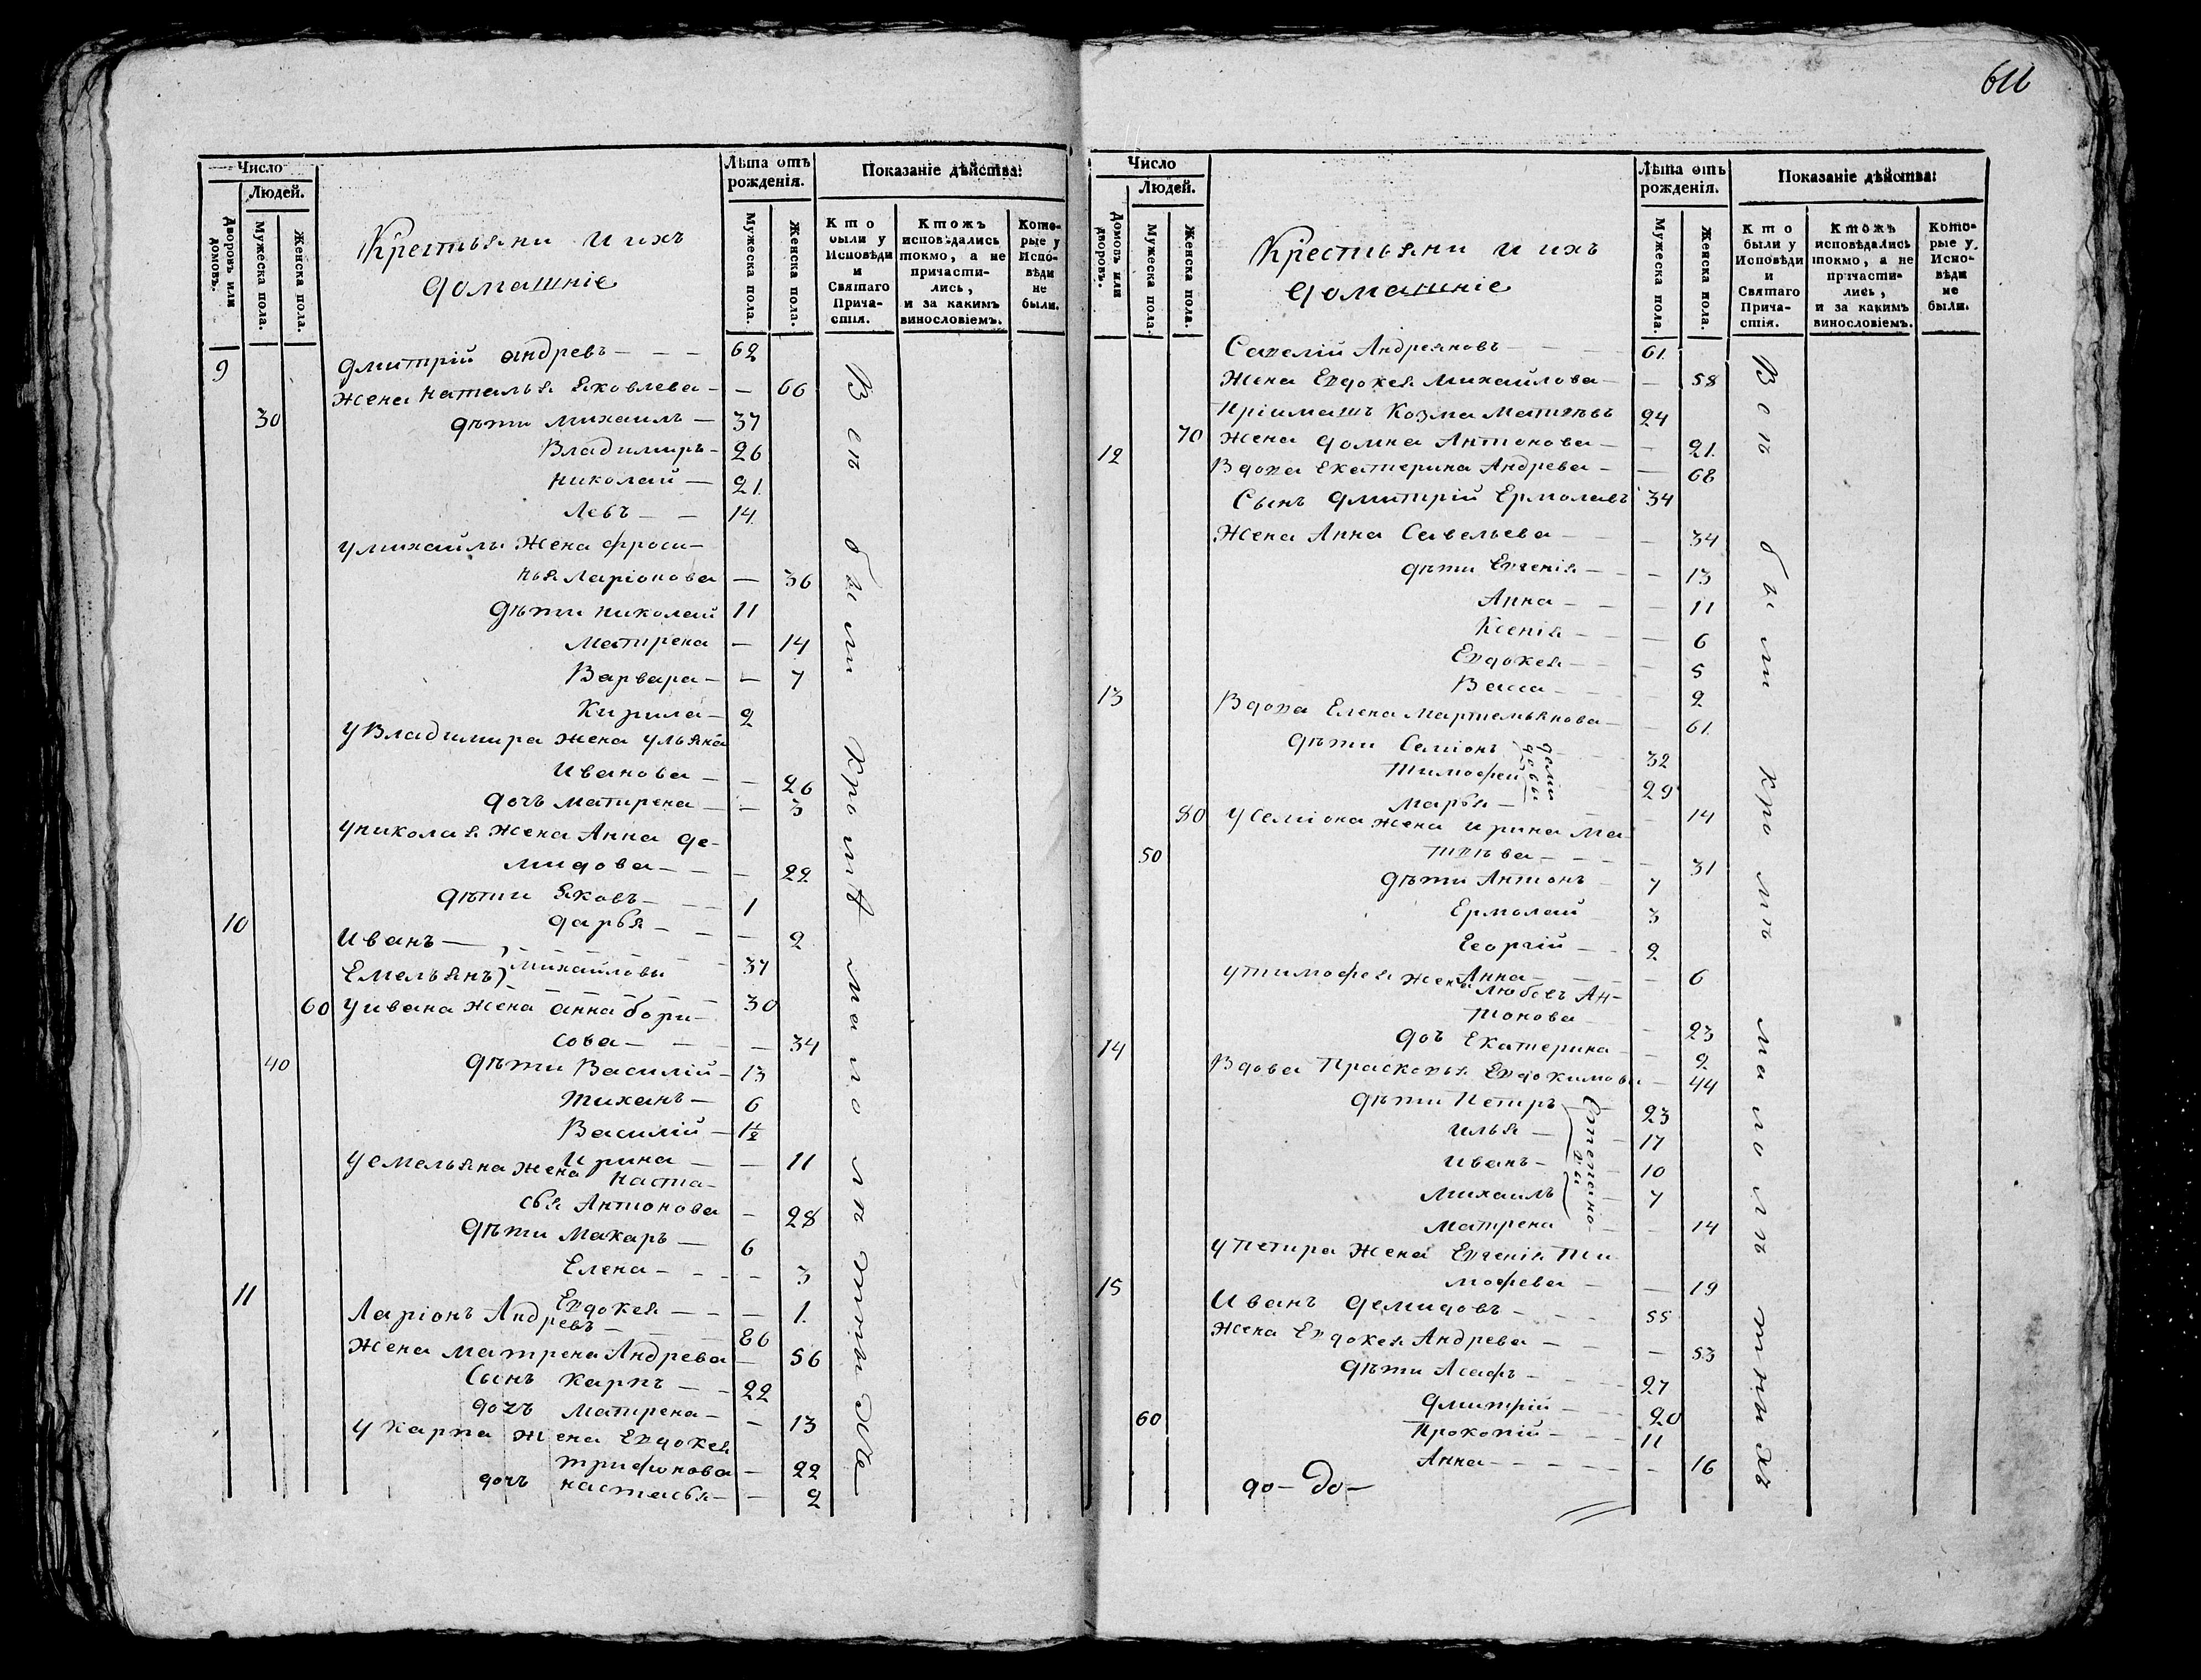 Число
Людей.
Дворовъ или домовъ.
Мужеска пола.
Женска пола.
Крестьяни и ихъ
домашніе
Лѣта отъ
рожденія.
Мужеска пола.
Женска пола.
Показаніе дѣйства:
Кто
были у
Исповѣди
и
Святаго
Прича-
стія.
Ктожъ
исповѣдались
токмо, а не
причасти-
лись,
и за какимъ
винословіемъ.
Кото-
рые у
Испо-
вѣди
не
были.
9 Дмитрій Андревъ — — — 62
Жена Наталья Яковлева — — 66
30 дѣти Михаилъ — 37
Владимиръ — 26
Николай — 21.
Левъ — — 14.
у Михайлы Жена Фроси-
нья Ларіонова — 36
Дѣти Николай 11
Матрена — 14
Варвара — — 7
Кирила — 2
у Владимира жена Ульяна
Иванова — — 26
дочъ Матрена — — 3
у Николая Жена Анна Де-
мидова — — — 22
дѣти Яковъ — — — 1
Дарья — — — 2
10 Иванъ — Михайловы — 37
Емельянъ — 30
60 у Ивана Жена Анна Бори-
сова — — — — 34
40 Дѣти Василій — 13
Тиханъ — 6
Василій — 1½
Ирина — — 11
у Емельяна Жена Наста-
сья Антонова — 28
Дѣти Макаръ — 6
Елена — — — — 3
Евдокея — — — 1.
11 Ларіонъ Андревъ — — — 86
Жена Матрена Андрева — 56
Сынъ Карпъ — — 22
дочъ Матрена — — 13
у Карпа Жена Евдокея
Трифонова — 22
дочъ Настасья — — 2
Вси были кромѣ малолѣтныхъ
611
Число
Людей.
Домовъ или дворовъ.
Мужеска пола.
Женска пола.
Крестьяни и ихъ
домашніе
Лѣта отъ
рожденія.
Мужеска пола.
Женска пола.
Показаніе дѣйства:
Кто
были у
Исповѣди
и
Святаго
Прича-
стія.
Ктожъ
исповѣдались
токмо, а не
причасти-
лись,
и за какимъ
винословіемъ.
Кото-
рые у
Испо-
вѣди
не
были.
Савелій Андреяновъ — — — 61.
Жена Евдокея Михайлова — — 58
Пріимашъ Козма Матвѣвъ 24
70 Жена Домна Антонова — — 21.
12 Вдова Екатерина Андрева — — 68
Сынъ Дмитрій Ермолавъ 34
Жена Анна Савельева — — — 34
дѣти Евгенія — — — 13
Анна — — — 11
Ксенія — — — 6
Евдокея — — — 5
Васса — — — 2
13 Вдова Елена Мартемьянова — — 61.
дѣти Семіонъ — 32
Тимофей — 29
Марья — — 14
80 у Семіона Жена Ирина Ма-
50 твѣва — — — — 31
дѣти Антонъ — 7
Ермолай 3
Георгій — — 2
Анна — — — — 6
у Тимофея Жена Любовь Ан-
тонова — 23
доч Екатерина — — 2
14 Вдова Прасковья Евдокимова — 44
дѣти Петръ — 23
Илья — — 17
Иванъ — — 10
Михаилъ — 7
Матрена — — 14
у Петра Жена Евгенія Ти
мофева — — 19
15 Иванъ Демидовъ — — — 55
Жена Евдокея Андрева — — — 53
Дѣти Асафъ — — — 27
Дмитрій — — 20
60 Прокопій — — — 11
Анна — — — — — 16
до — до —
Вси были кромѣ малолѣтныхъ